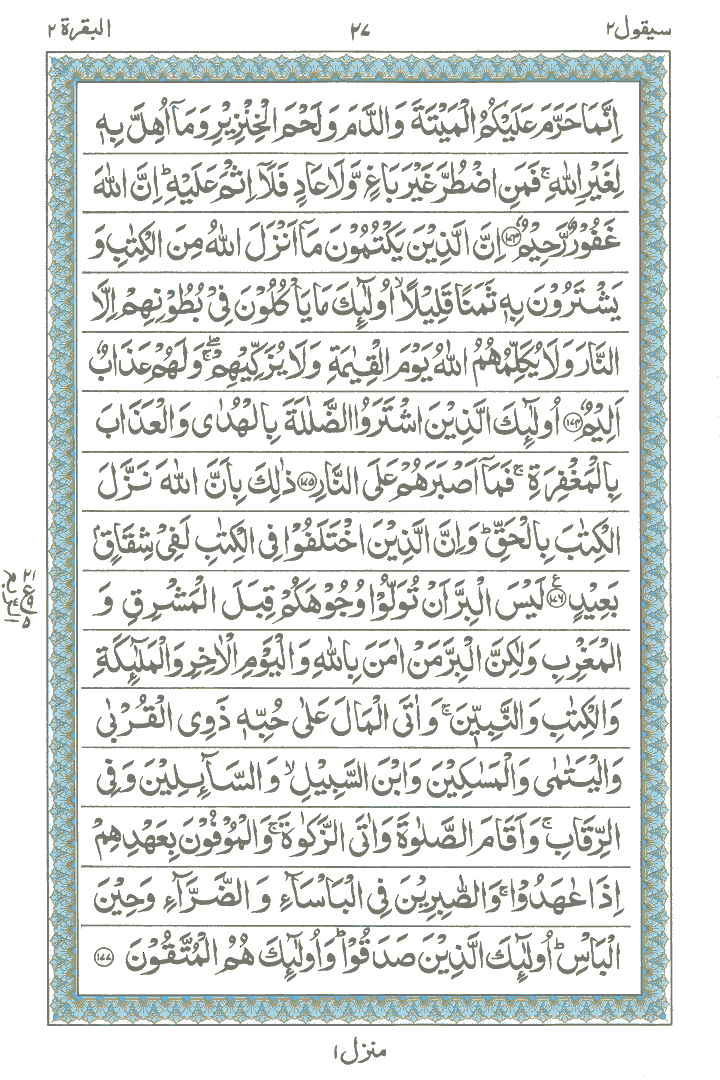 سيقول ٢ ٢٧ البقرة ٢
اِنَّمَا حَرَّمَ عَلَيۡكُمُ الۡمَيۡتَةَ وَالدَّمَ وَلَحۡمَ الۡخِنۡزِيۡرِ وَمَاۤ اُهِلَّ بِهٖ
لِغَيۡرِ اللّٰهِۚ فَمَنِ اضۡطُرَّ غَيۡرَ بَاغٍ وَّلَا عَادٍ فَلَاۤ اِثۡمَ عَلَيۡهِؕ اِنَّ اللّٰهَ
غَفُوۡرٌ رَّحِيۡمٌ ﴿۱۷۳﴾ اِنَّ الَّذِيۡنَ يَكۡتُمُوۡنَ مَاۤ اَنۡزَلَ اللّٰهُ مِنَ الۡکِتٰبِ وَ
يَشۡتَرُوۡنَ بِهٖ ثَمَنًا قَلِيۡلًاۙ اُولٰٓٮِٕكَ مَا يَاۡكُلُوۡنَ فِىۡ بُطُوۡنِهِمۡ اِلَّا
النَّارَ وَلَا يُکَلِّمُهُمُ اللّٰهُ يَوۡمَ الۡقِيٰمَةِ وَلَا يُزَکِّيۡهِمۡ ۖۚ وَلَهُمۡ عَذَابٌ
اَلِيۡمٌ ﴿۱۷۴﴾ اُولٰٓٮِٕكَ الَّذِيۡنَ اشۡتَرَوُا الضَّلٰلَةَ بِالۡهُدٰى وَالۡعَذَابَ
بِالۡمَغۡفِرَةِۚ فَمَآ اَصۡبَرَهُمۡ عَلَى النَّارِ ﴿۱۷۵﴾ ذٰلِكَ بِاَنَّ اللّٰهَ نَزَّلَ
الۡکِتٰبَ بِالۡحَـقِّؕ وَاِنَّ الَّذِيۡنَ اخۡتَلَفُوۡا فِى الۡكِتٰبِ لَفِىۡ شِقَاقٍۢ
بَعِيۡدٍ ﴿۱۷۶﴾ لَيۡسَ الۡبِرَّ اَنۡ تُوَلُّوۡا وُجُوۡهَكُمۡ قِبَلَ الۡمَشۡرِقِ وَ
الۡمَغۡرِبِ وَلٰـكِنَّ الۡبِرَّ مَنۡ اٰمَنَ بِاللّٰهِ وَالۡيَوۡمِ الۡاٰخِرِ وَالۡمَلٰٓٮِٕکَةِ
وَالۡكِتٰبِ وَالنَّبِيّٖنَۚ وَاٰتَى الۡمَالَ عَلٰى حُبِّهٖ ذَوِى الۡقُرۡبٰى
وَالۡيَتٰمٰى وَالۡمَسٰكِيۡنَ وَابۡنَ السَّبِيۡلِۙ وَالسَّآٮِٕلِيۡنَ وَفِى
الرِّقَابِۚ وَاَقَامَ الصَّلٰوةَ وَاٰتَى الزَّکٰوةَ ۚ وَالۡمُوۡفُوۡنَ بِعَهۡدِهِمۡ
اِذَا عٰهَدُوۡا ۚ وَالصّٰبِرِيۡنَ فِى الۡبَاۡسَآءِ وَالضَّرَّآءِ وَحِيۡنَ
الۡبَاۡسِؕ اُولٰٓٮِٕكَ الَّذِيۡنَ صَدَقُوۡاؕ وَاُولٰٓٮِٕكَ هُمُ الۡمُتَّقُوۡنَ ﴿۱۷۷﴾
منزل ۱